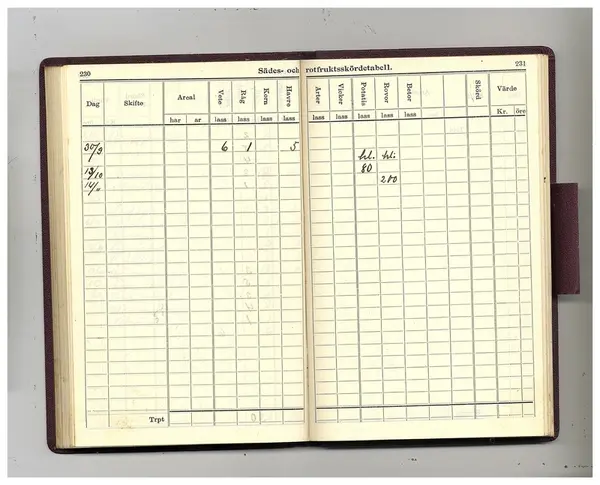 230
Sädes- och rotfruktsskördetabell.
231
Dag Skifte Areal Vete Råg Korn Havre Ärter Vicker Potatis Rovor Betor Skörd Värde
har ar lass lass lass lass lass lass lass lass lass Kr. öre
30/9 6 1 5 hl. hl.
80
200
Trpt